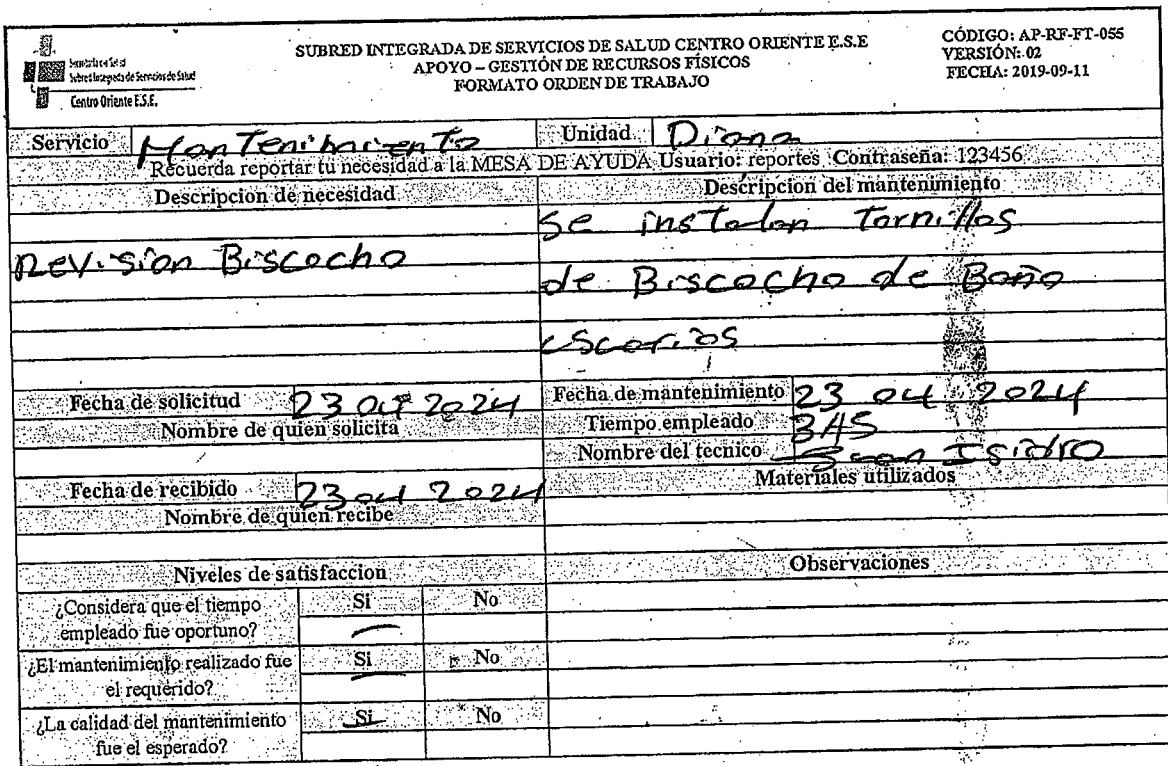 Secretaría de Salud
Subred Integrada de Servicios de Salud
Centro Oriente E.S.E.
SUBRED INTEGRADA DE SERVICIOS DE SALUD CENTRO ORIENTE E.S.E
APOYO – GESTIÓN DE RECURSOS FÍSICOS
FORMATO ORDEN DE TRABAJO
CÓDIGO: AP-RF-FT-055
VERSIÓN: 02
FECHA: 2019-09-11
Servicio Mantenimiento Unidad Diana
Recuerda reportar tu necesidad a la MESA DE AYUDA Usuario: reportes Contraseña: 123456
Descripcion de necesidad
Revision Biscocho
Descripcion del mantenimiento
se instalan Tornillos
de Biscocho de Baño
Fecha de solicitud 23 04 2024
Nombre de quien solicita
Fecha de mantenimiento 23 04 2024
Tiempo empleado
Nombre del tecnico Isidro
Fecha de recibido 23 04 2024
Nombre de quien recibe
Materiales utilizados
Niveles de satisfaccion
Observaciones
¿Considera que el tiempo
empleado fue oportuno?
Si No
¿El mantenimiento realizado fue
el requerido?
Si No
¿La calidad del mantenimiento
fue el esperado?
Si No